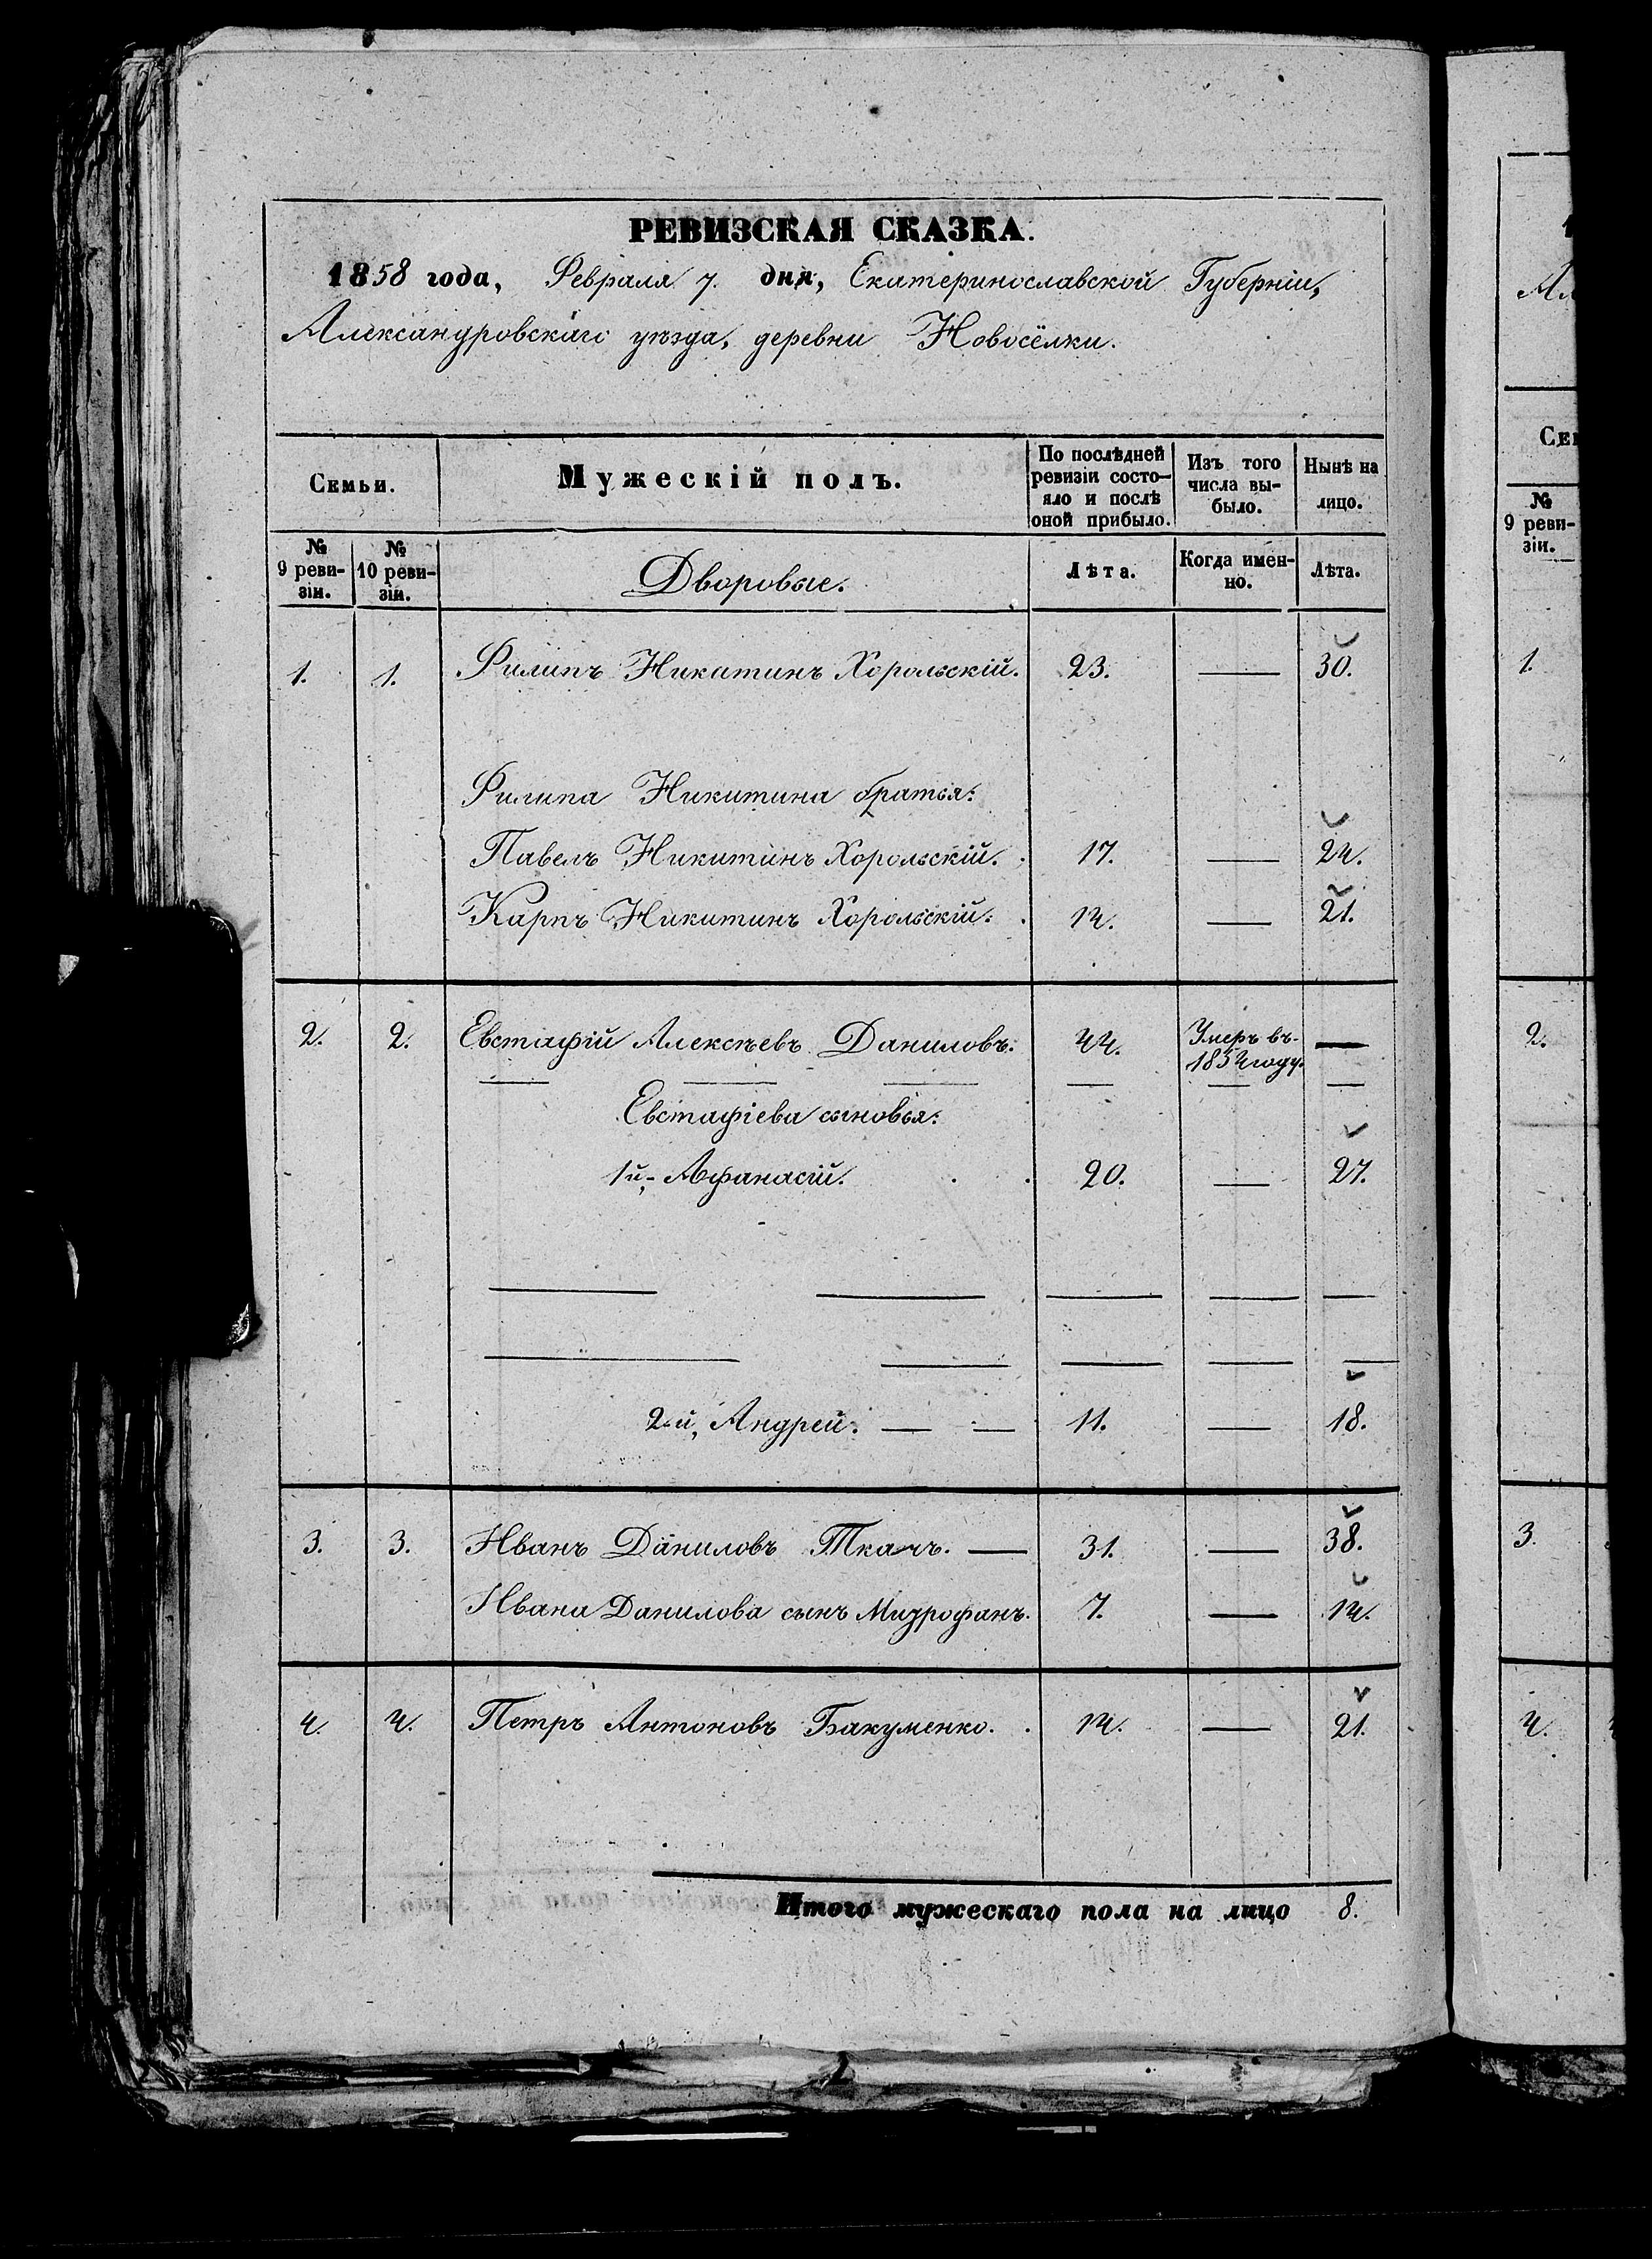 РЕВИЗСКАЯ СКАЗКА.
1858 года, Февраля 7. дня, Екатеринославской Губерніи,
Александровскаго уѣзда, деревни Новосёлки.
Семьи. Мужескій полъ. По послѣдней ревизіи состо- яло и послѣ оной прибыло. Изъ того числа вы- было. Нынѣ на лицо.
№ 9 реви- зіи. № 10 реви- зіи. Дворовые. Лѣта. Когда имен- но. Лѣта.
1. 1. Филипъ Никатинъ Хорольскій. 23. — 30.
Филипа Никитина братья:
Павелъ Никитинъ Хорольскій. 17. — 24.
Карпъ Никитинъ Хорольскій. 14. — 21.
2. 2. Евстафій Алексѣевъ Даниловъ. 44. Умеръ въ 1854 году. —
Евстафіева сыновья:
1й, Афанасій. 20. — 27.
2й, Андрей. — — 11. — 18.
3. 3. Иванъ Даниловъ Ткачъ. — 31. — 38.
Ивана Данилова сынъ Митрофанъ. 7. — 14.
4. 4. Петръ Антоновъ Бакуменко. 14. — 21.
Итого мужескаго пола на лицо 8.
Сем
№ 9 реви- зіи.
1.
2.
3.
4.